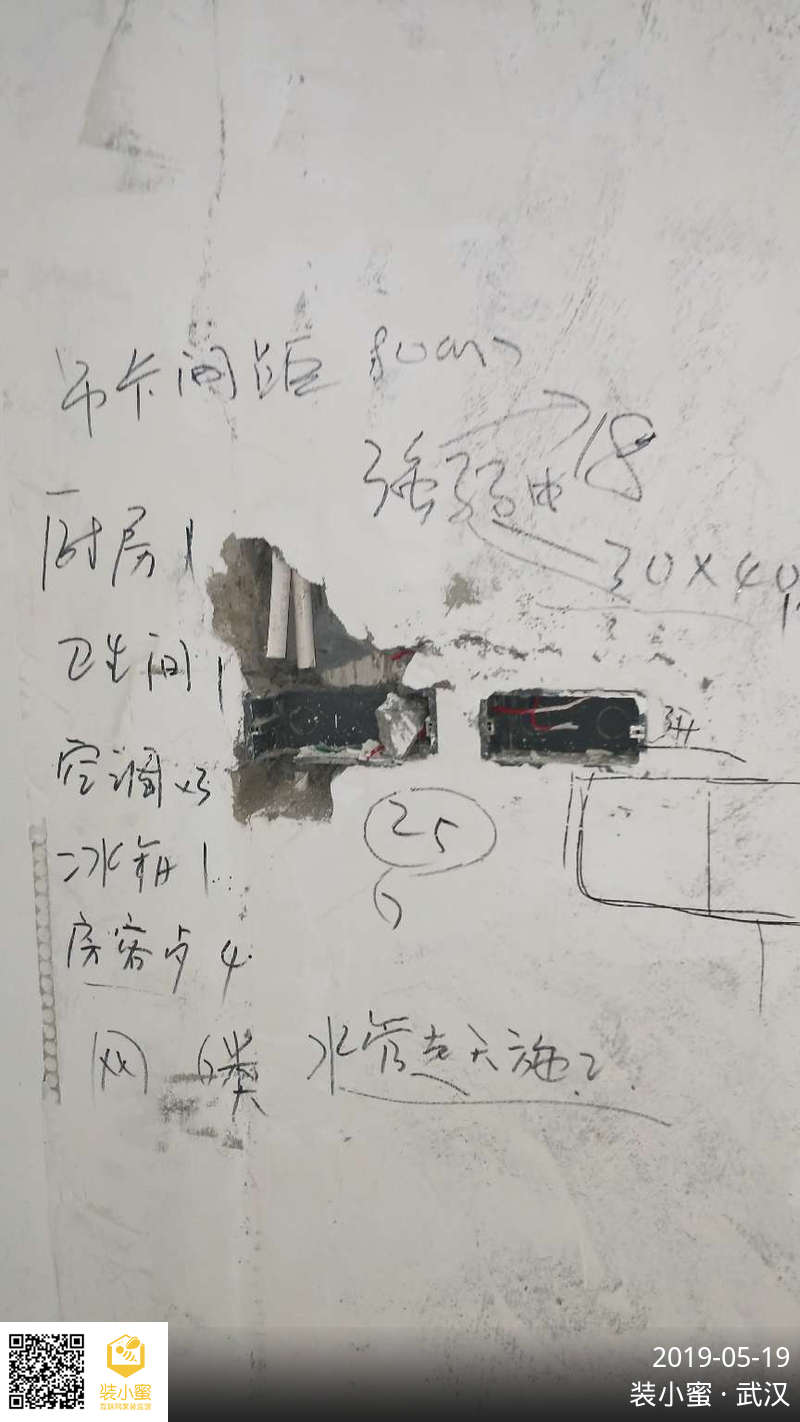 吊卡间距 80cm
强弱电 18
30×40
厨房 1
卫生间 1
空调 ×3
冰箱 1
房客卢 4
25
6
网 6类 水管走天施工
2019-05-19
装小蜜 · 武汉
装小蜜